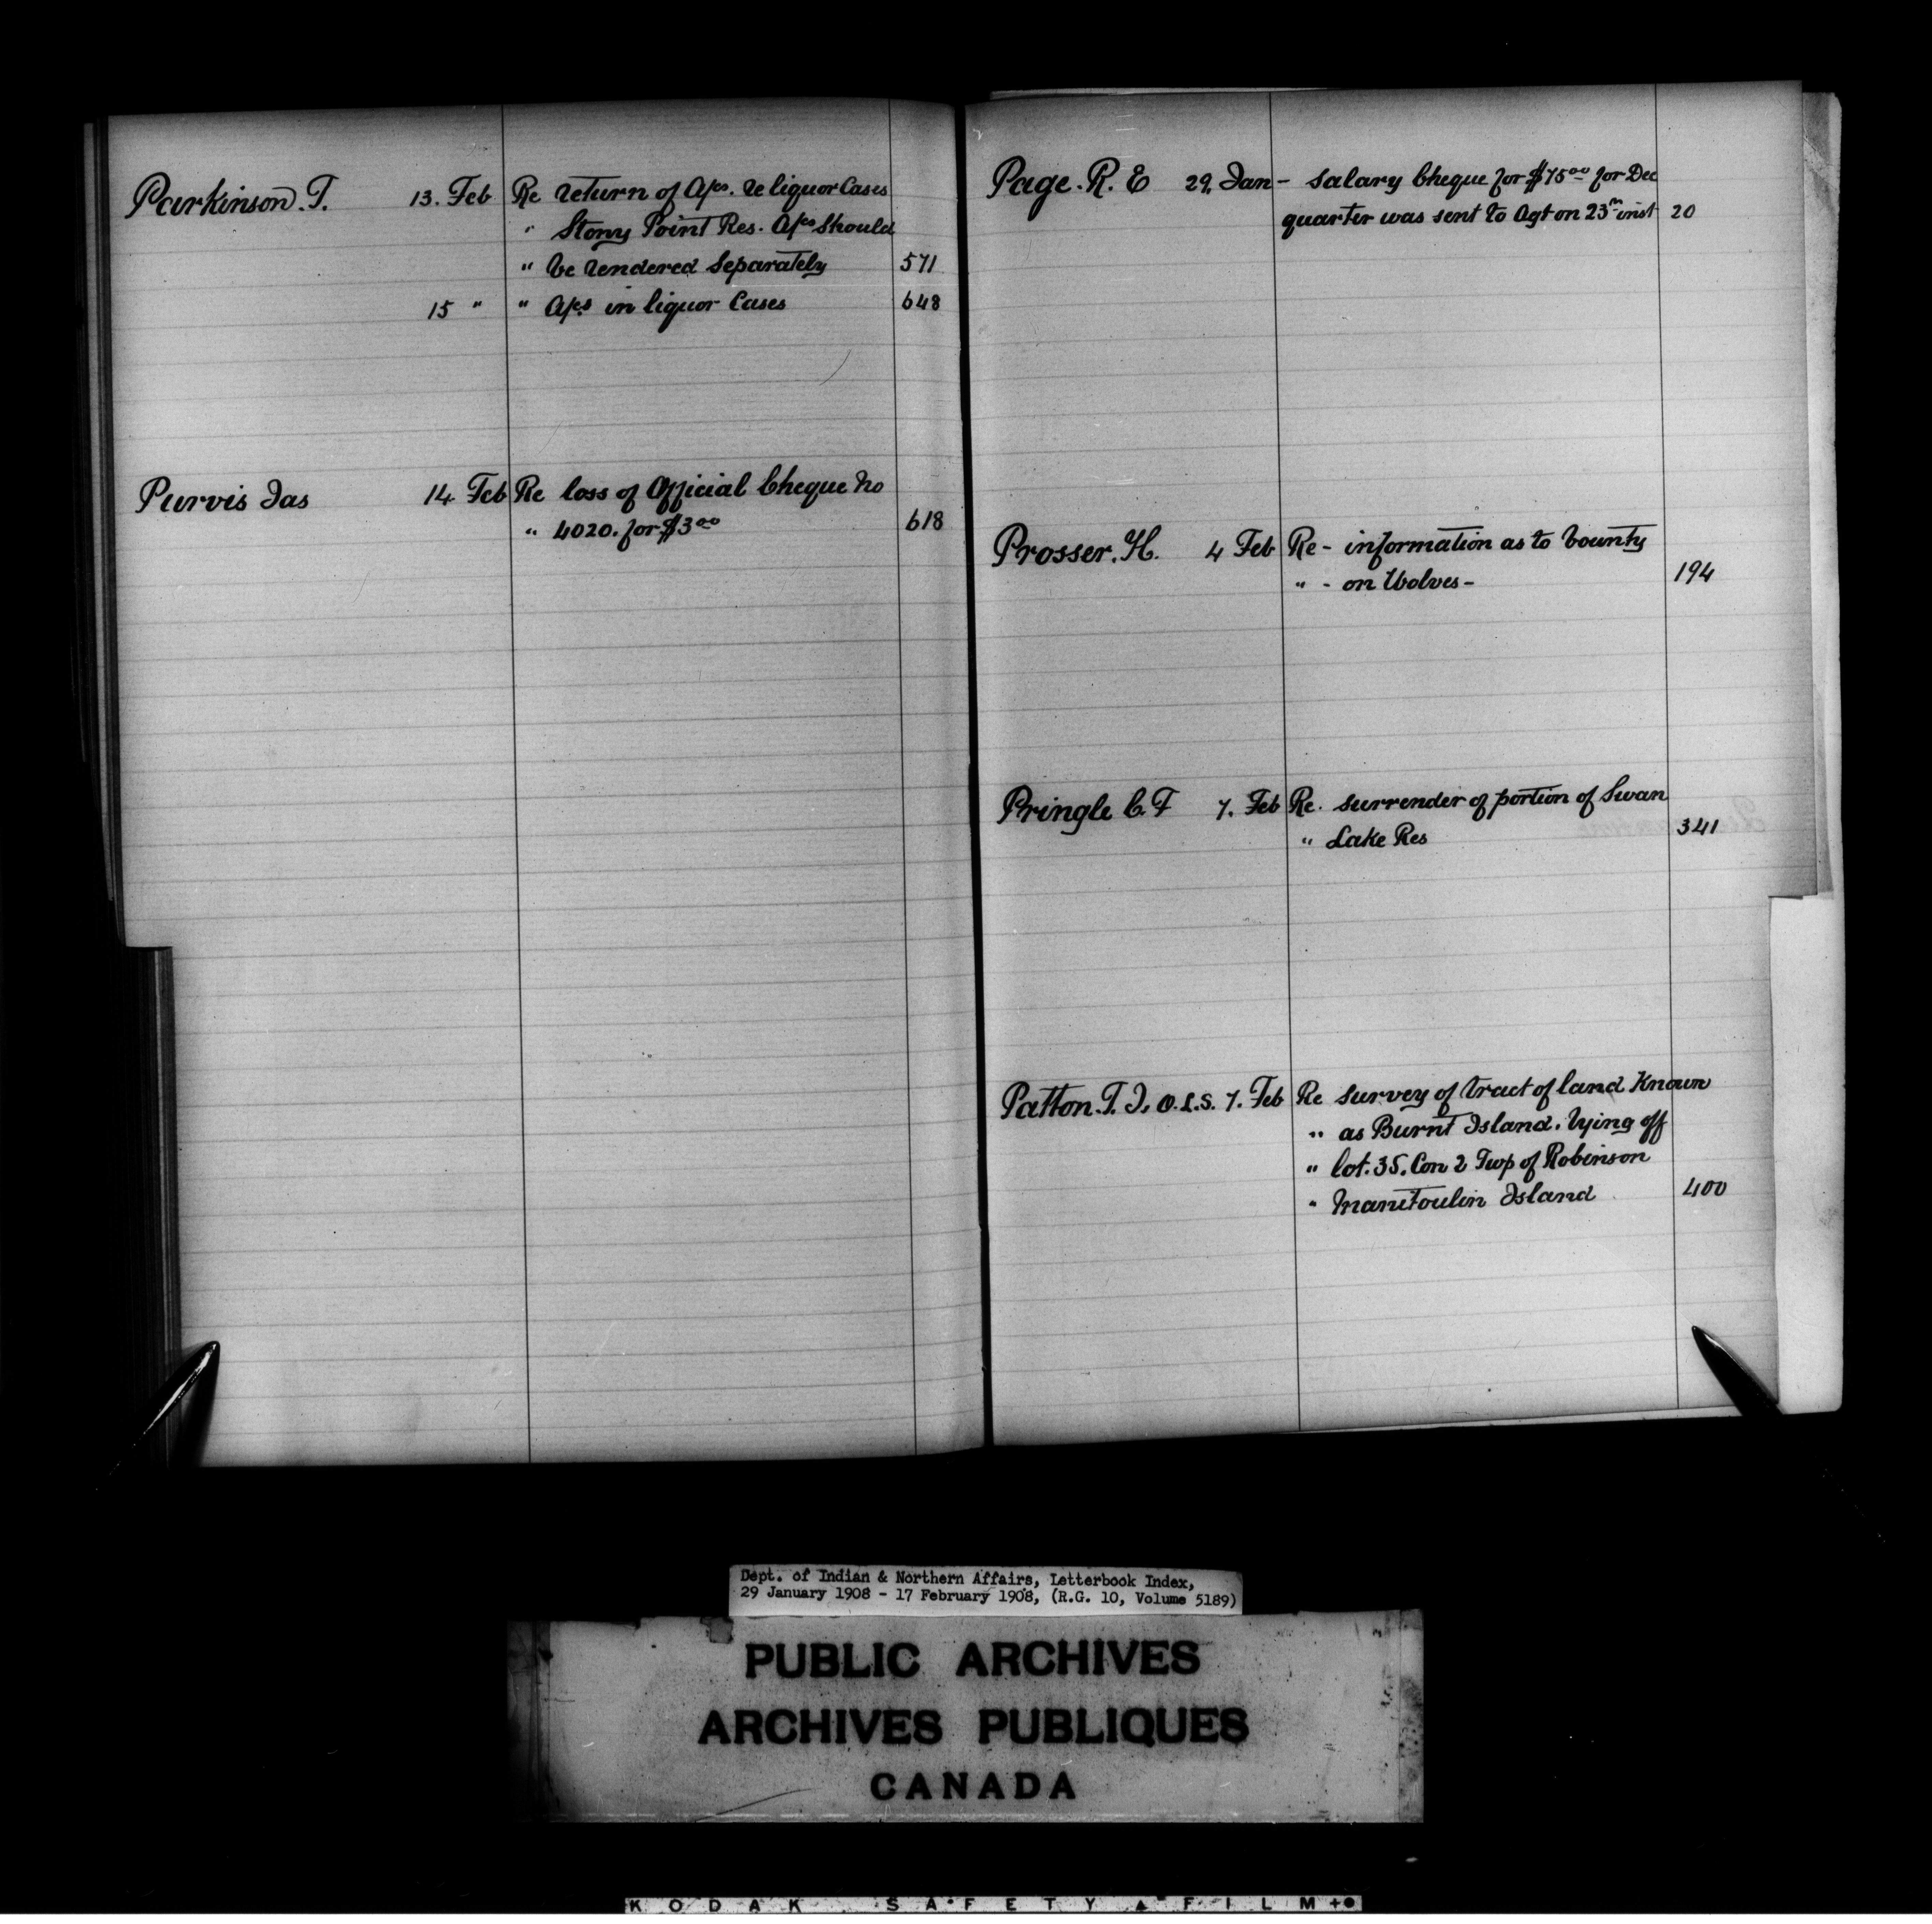 Parkinson. T. 13. Feb Re return of A/cs. re liquor Cases
" Stony Point Res. A/cs should
" be rendered separately 571
15 " " A/cs in liquor Cases 648
Purvis Jas 14 Feb Re loss of Official Cheque No
" 4020. for $3.00 618
Page. R. E 29. Jan - salary Cheque for $75.00 for Dec
quarter was sent to Agt on 23rd inst 20
Prosser. H. 4 Feb Re - information as to bounty
" - on Wolves - 194
Pringle C. F 7. Feb Re. surrender of portion of Swan
" Lake Res 341
Patton. T. J. O.L.S. 7. Feb Re survey of tract of land Known
" as Burnt Island. lying off
" lot. 35. Con 2 Twp of Robinson
" Manitoulin Island 400
Dept. of Indian & Northern Affairs, Letterbook Index,
29 January 1908 - 17 February 1908, (R.G. 10, Volume 5189)
PUBLIC ARCHIVES
ARCHIVES PUBLIQUES
CANADA
KODAK SAFETY FILM